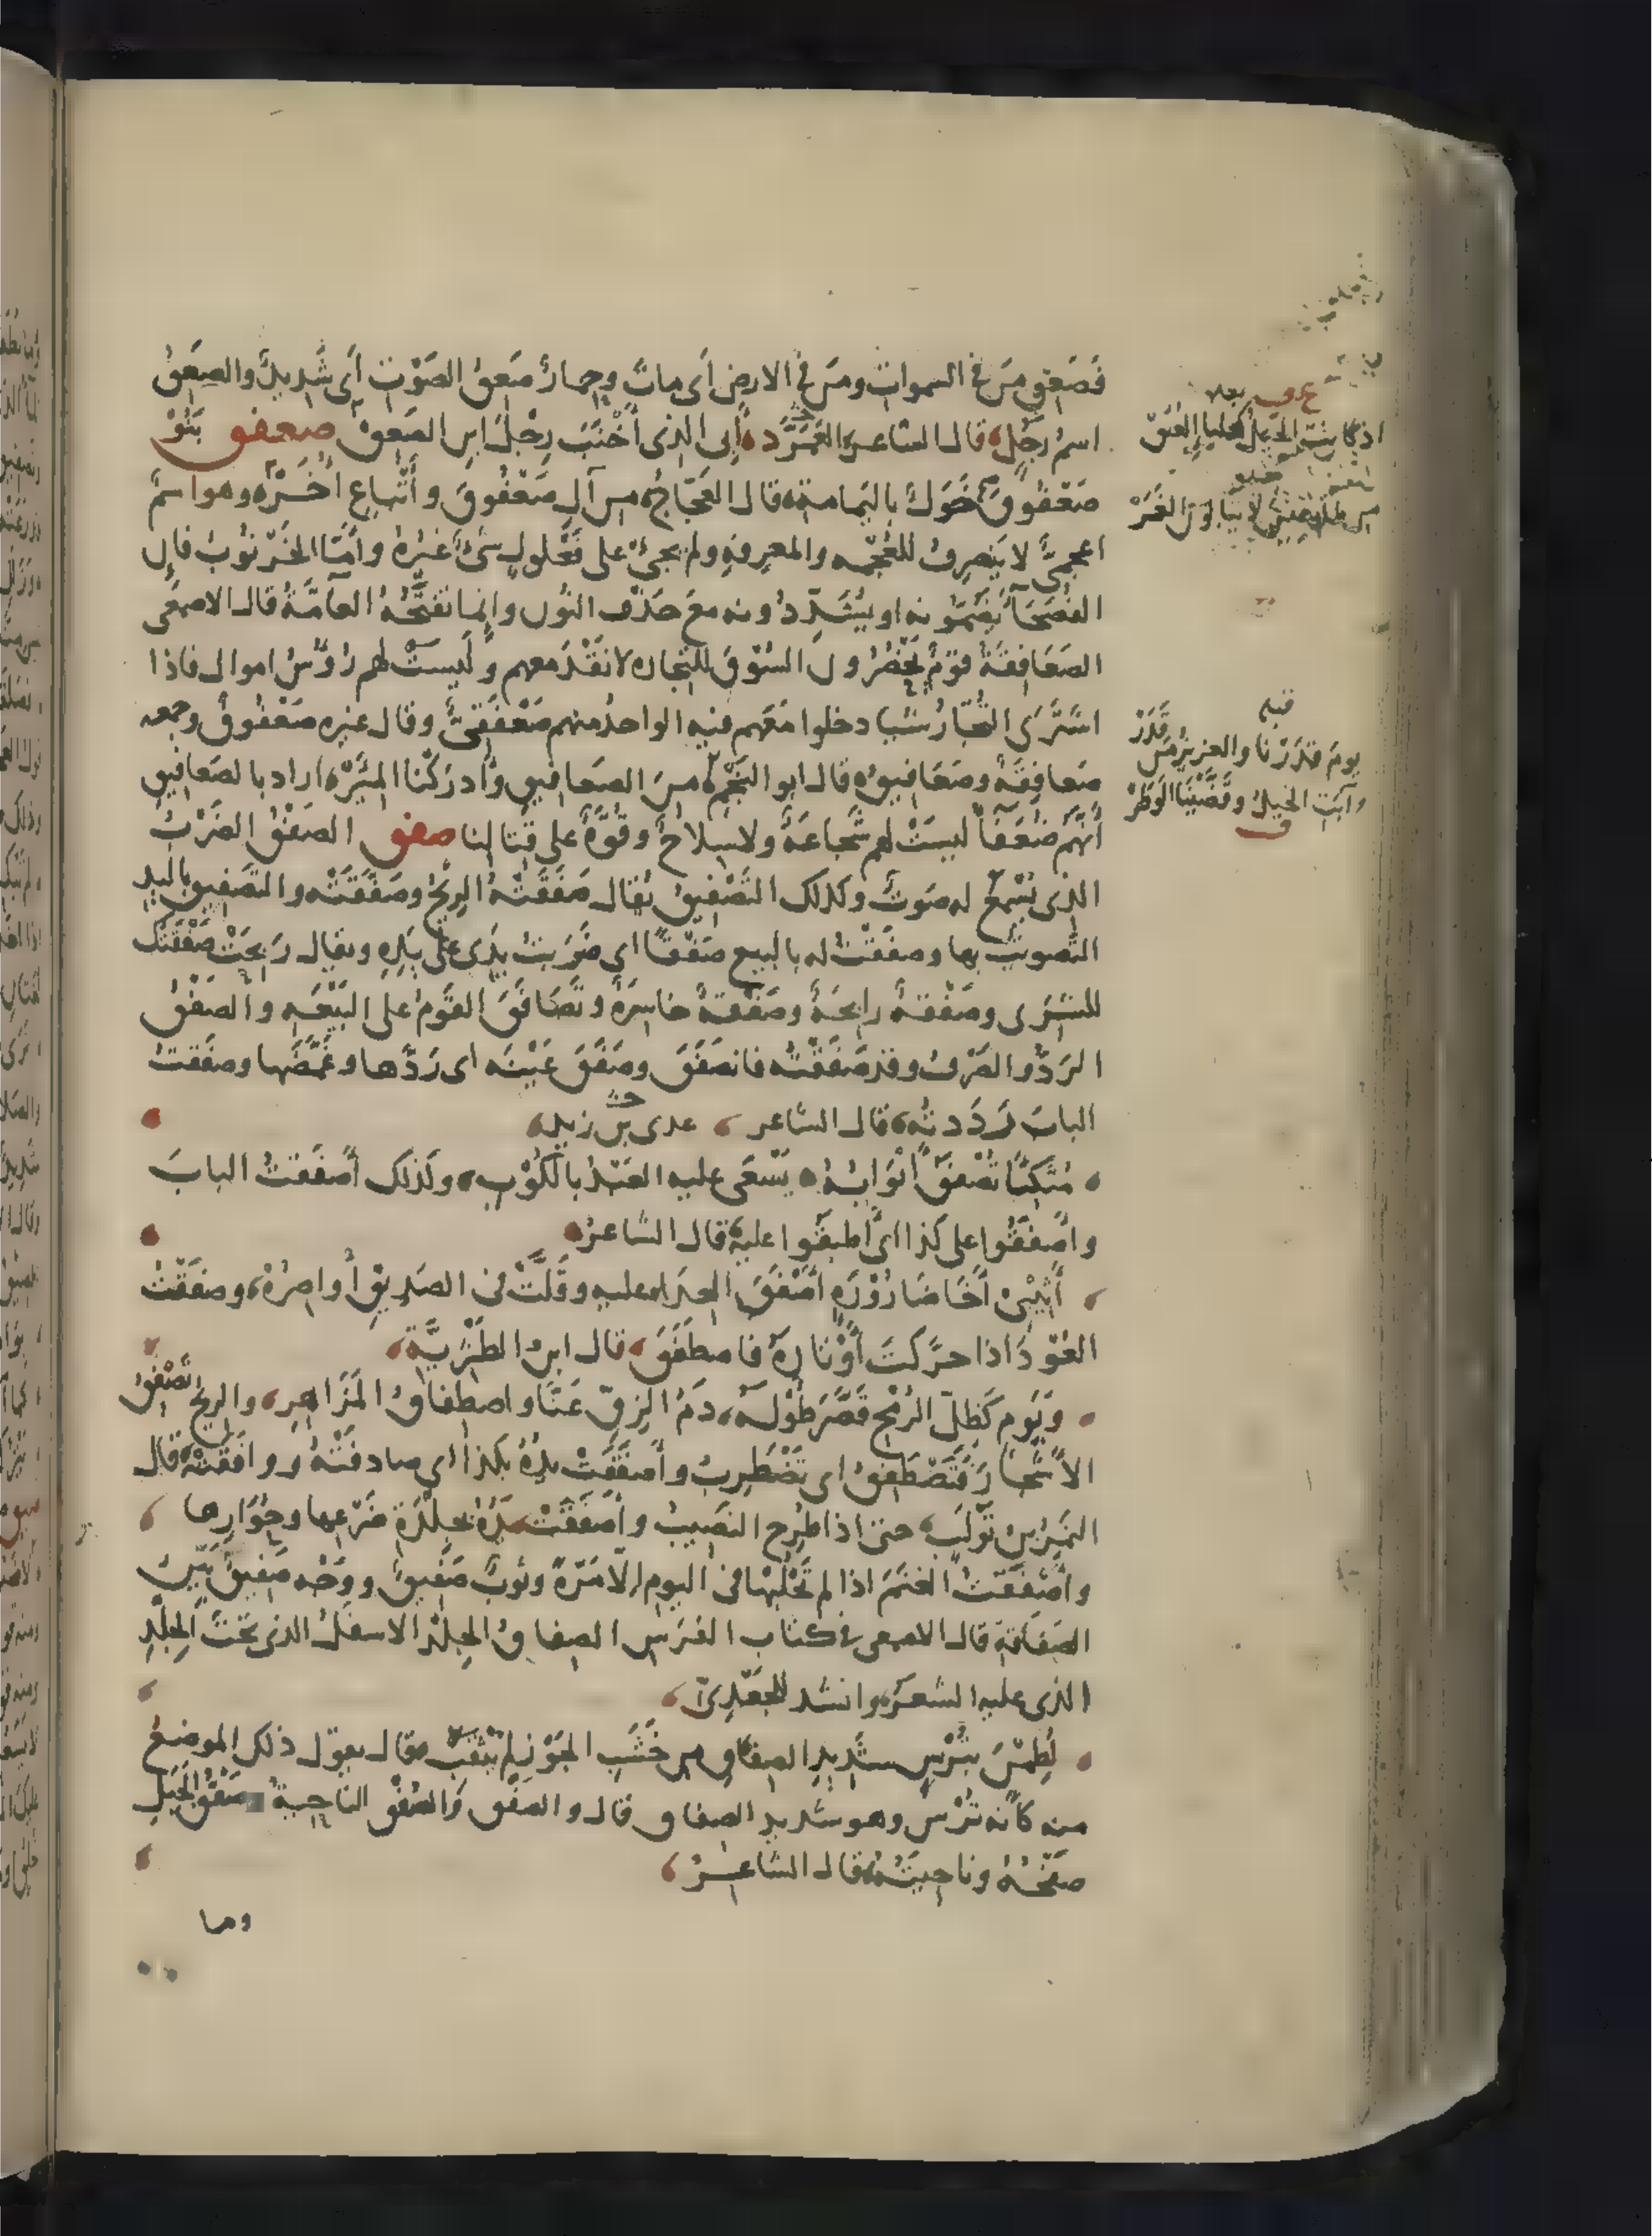 فَصَعِقَ مَن في السموات ومَن في الارض أَى مات وحِمارٌ صَعِقُ الصَوْتِ أى شَديدٌ والصَعِقُ
اسمُ رَجُلٍ قال الشاعر الفَرَزْدَق أبى الذى أَخْنَبَ رِجْلَ ابنِ الصَعِق صعفق بَنُوْ
صَعْفُوقَ خَوَلٌ باليَمامة قال العَجّاجُ من آلِ صَعْفُوقَ وأَتْباعٍ أُخَرْ وهو اسمٌ
اعجمىٌّ لا يَنصرِفُ للعُجمه والمعرِفةِ ولم يجئ على فَعْلولٍ شئٌ غيرُهُ وأَمّا الخَرْنُوبُ فإن
الفُصَحَاءَ يَضُمّونه او يُشَدِّدُونه معَ حَذْف النُون وإنما تفتَحُهُ العامَّةُ قال الاصمعى
الصَعَافِقَةُ قومٌ يَحْضُرُونَ السُوْقَ للتجاره لا نَقْدَ معهم ولَيسَتْ لهم رُؤُسُ اموال فاذا
اشتَرَى التُجّارُ شيا دخلوا مَعَهم فيه الواحدُ منهم صَعْفَقىٌّ وقال غيره صَعْفُوقٌ وجمعه
صَعافِقَةٌ وصَعَافيقُ قال ابو النَجْم مِنَ الصَعافيقِ وأدرَكْنا المِئَرْ اراد بالصَعافيق
أَنَّهُم ضُعَفَاءُ ليسَتْ لهم شَجاعَةٌ ولا سِلاحٌ وقُوَّةٌ على قتالنا صفق الصَفْقُ الضَرْبُ
الذى يُسْمَعُ له صَوتٌ وكذلك التَصْفيقُ يُقال صَفَقَتْهُ الريْحُ وصَفَّقَتْه والتصفيق باليد
التصويتُ بها وصفَقْتُ له بالبيع صَفْقاً اى ضَرَبتُ يَدِى على يَدِهِ ويقال رَبِحَتْ صَفْقَتُك
للشِرَى وصَفْقةٌ رابحةٌ وصَفْقةٌ خاسِرَةٌ وتَصَافَقَ القَومُ على البَيْعَه والصَفْقُ
الرَدُّ والصَرْفُ وقد صَفَقْتُه فانصَفَقَ وصَفَقَ عَيْنَه اى رَدَّها وغَمَّضَها وصفَقتُ
البابَ رَدَدتُه قال الشاعر عدى بن زيد
مُتَّكِئًا تُصْفَقُ أَبْوَابُهُ يَسْعَى عليه العَبْدُ بالكُوْب وكَذلكَ أَصفَقتُ البابَ
وأصفَقُوا على كَذا اى أَطبقُوا عليه قال الشاعر
أَثِيْبى أَخَا ضَارُوْرَةٍ أَصْفَقَ العِدَى عليه وقَلَّتْ فى الصَدِيقِ أَواصِرُهْ وصفَقْتُ
العُوْدَ اذا حرّكتَ أَوْتارَهُ فاصطَفَقَ قال ابن الطَثْرِيَّة
ويَوم كَظلّ الرُمْح قَصَّرَ طُوْلَهُ دَمُ الزِقّ عَنّا واصطِفاقُ المَزَاهِرِ والريحُ تَصْفُقُ
الأَشجارَ فَتَصْطَفِقُ اى تَضْطَرِبُ وأَصفَقَتْ يَدُهُ بكذا اى صادفَتْهُ ووافَقَتْهُ قال
النَمِرُ بن تَوْلَب حتى اذا طُرِحَ النَصِيبُ وأَصفَقَتْ يَدُهُ بجِلْدَةِ ضَرْعِها وحُوَارِها
وأَصْفَقْتُ الغنَمَ اذا لم تَحْلُبْها فى اليوم إلّا مَرّةً وثوبٌ صَفيقٌ ووَجْه صَفيقٌ بَيّنُ
الصَفاقة قال الاصمعى فى كتاب الفَرَسِ الصِفاقُ الجِلْدُ الاسفَلُ الذى تحْتَ الجِلْدِ
الذى عليه الشعَرُ وانشد للجَعْدِىّ
لُطِمْنَ بتُرْسٍ شَدِيدِ الصِفاقِ من خَشَبِ الجَوْزِ لم يُثْقَبْ فقال يقول ذلك الموضعُ
منه كأنه تُرْس وهو شديد الصفاق قال والصَفْق والصُفْق الناحيةُ وصَفْقُ الجَبَلِ
صَفْحُهُ وناحِيَتُهُ قال الشاعِرُ
وما
فيهم
يومَ قَدَرْنا والعزيزُ مَن قَدَرْ
وآبَت الخيلُ وقَضَّيْنا الوَطَرْ